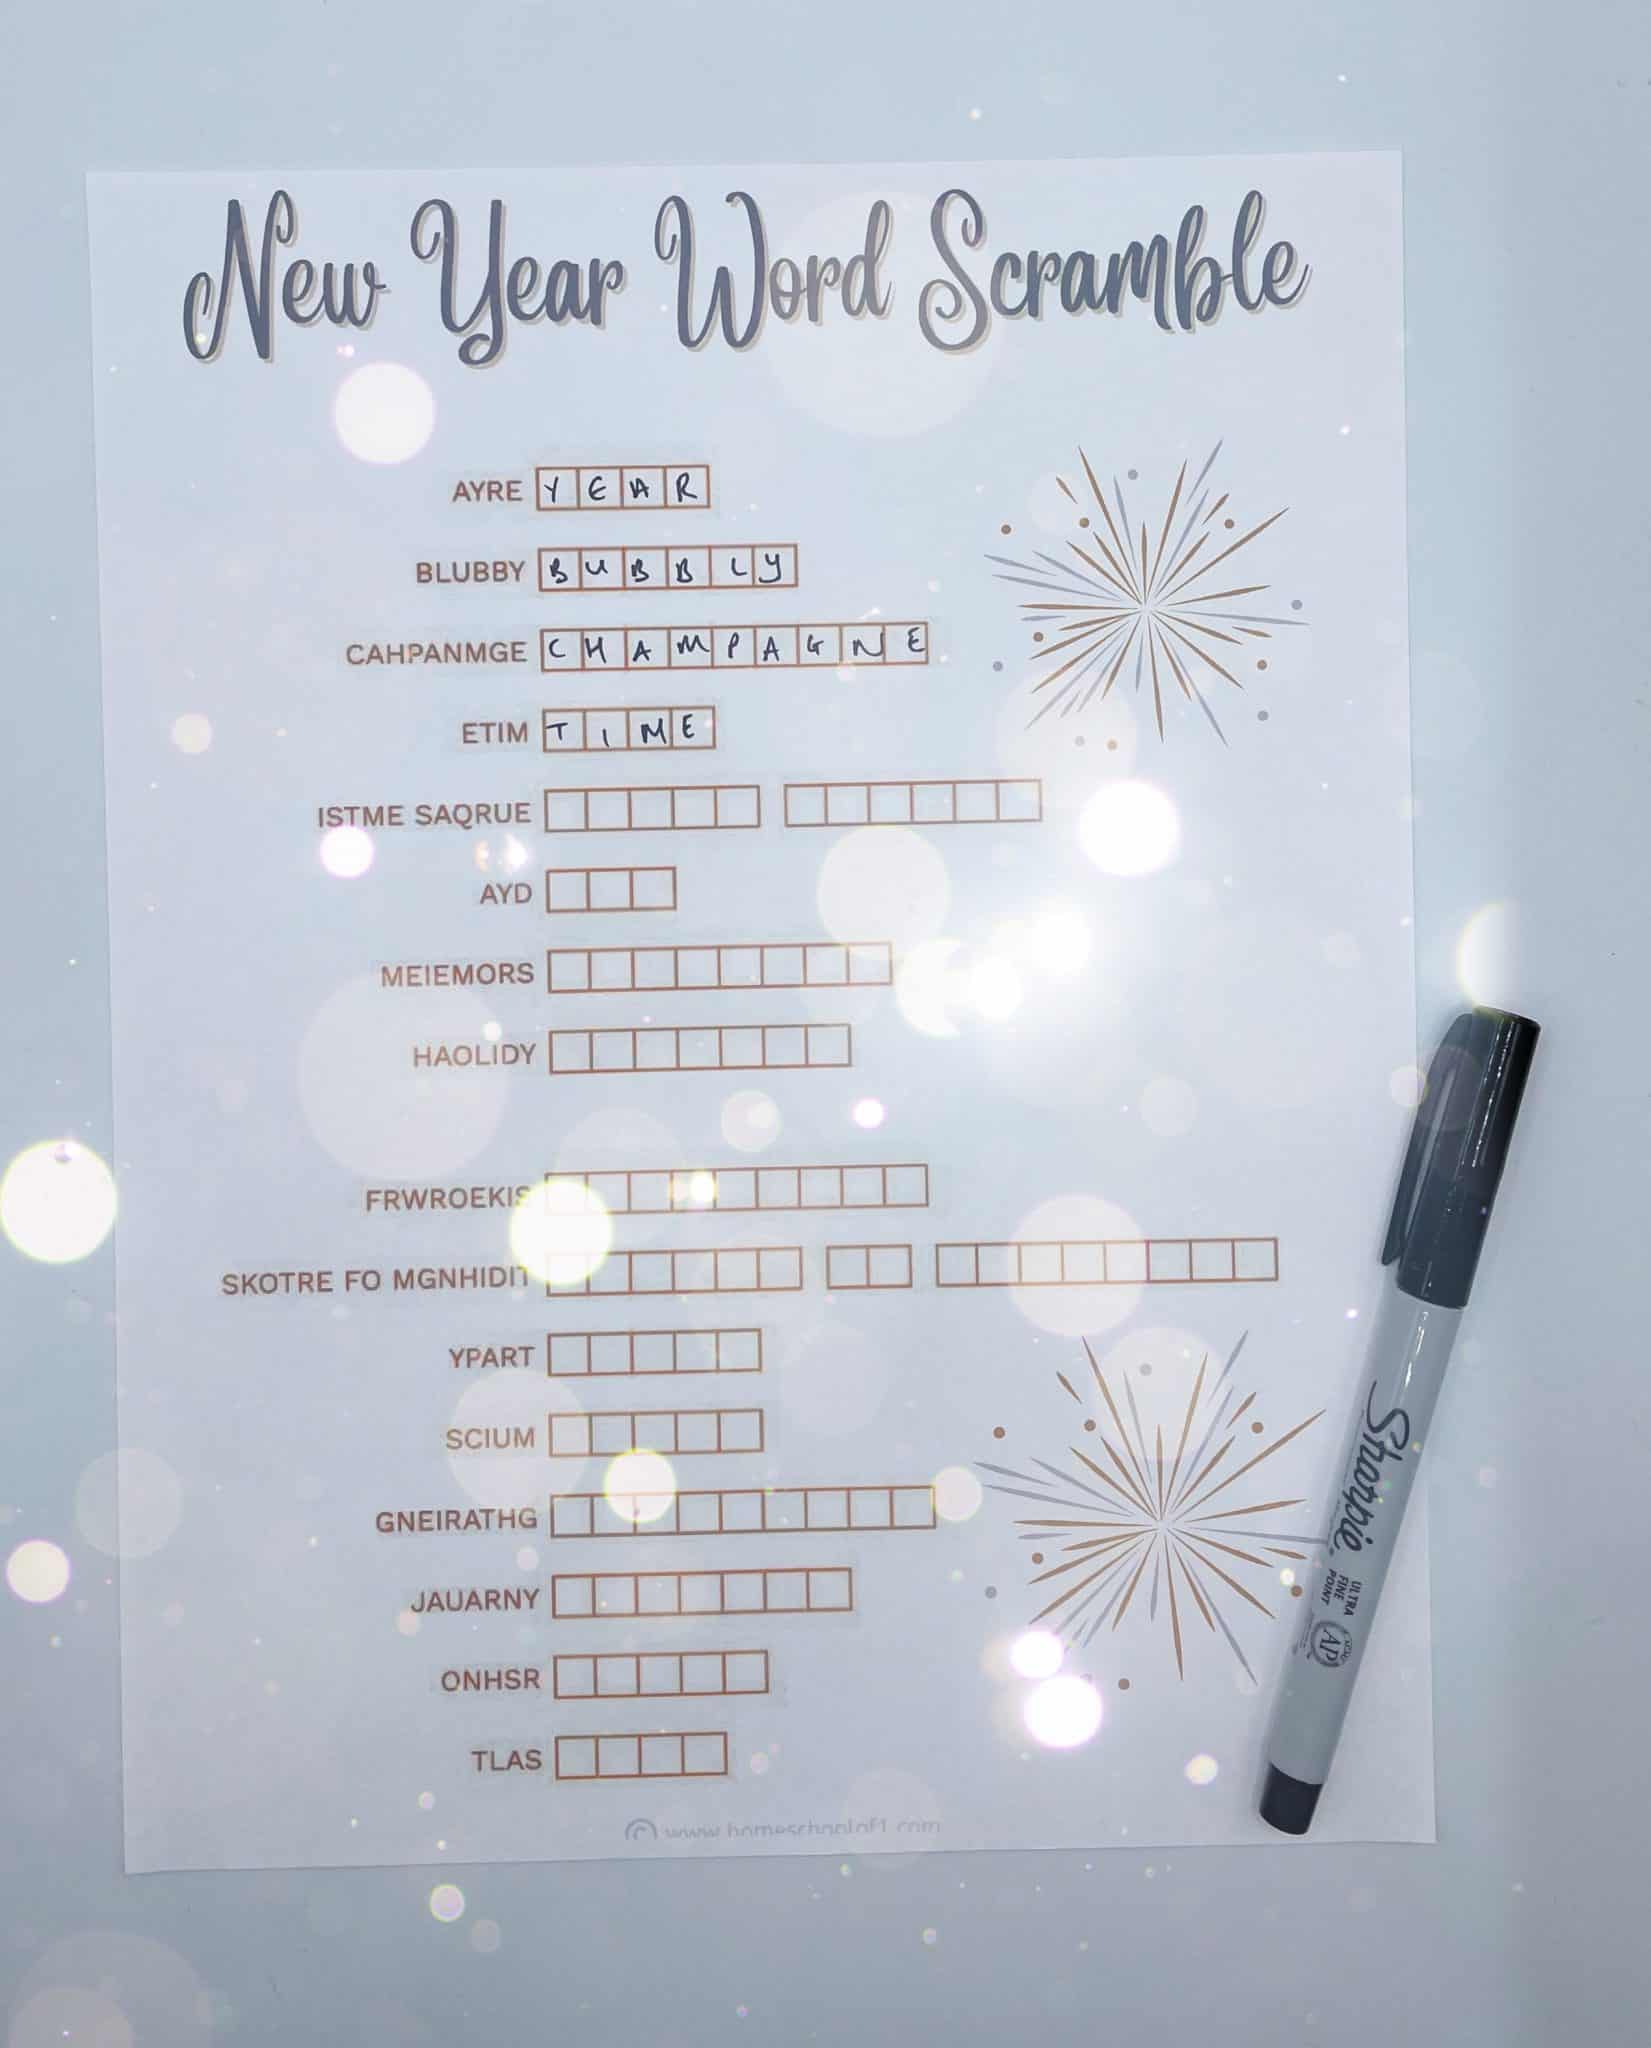 New Year Word Scramble
AYRE YEAR
BLUBBY BUBBLY
CAHPANMGE CHAMPAGNE
ETIM TIME
ISTME SAQRUE
AYD
MEIEMORS
HAOLIDY
FRWROEKIS
SKOTRE FO MGNHIDIT
YPART
SCIUM
GNEIRATHG
JAUARNY
ONHSR
TLAS
© www.homeschoolof1.com
Sharpie.
ULTRA
FINE
POINT
AP